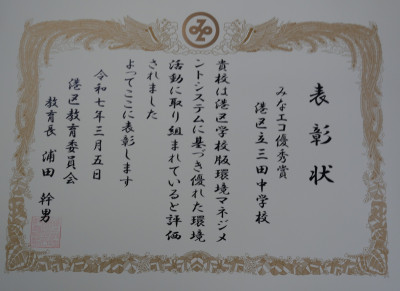 表彰状
みなエコ優秀賞
港区立三田中学校
貴校は港区学校版環境マネジメ
ントシステムに基づき優れた環境
活動に取り組まれていると評価
されました
よってここに表彰します
令和七年三月五日
港区教育委員会
教育長 浦田幹男